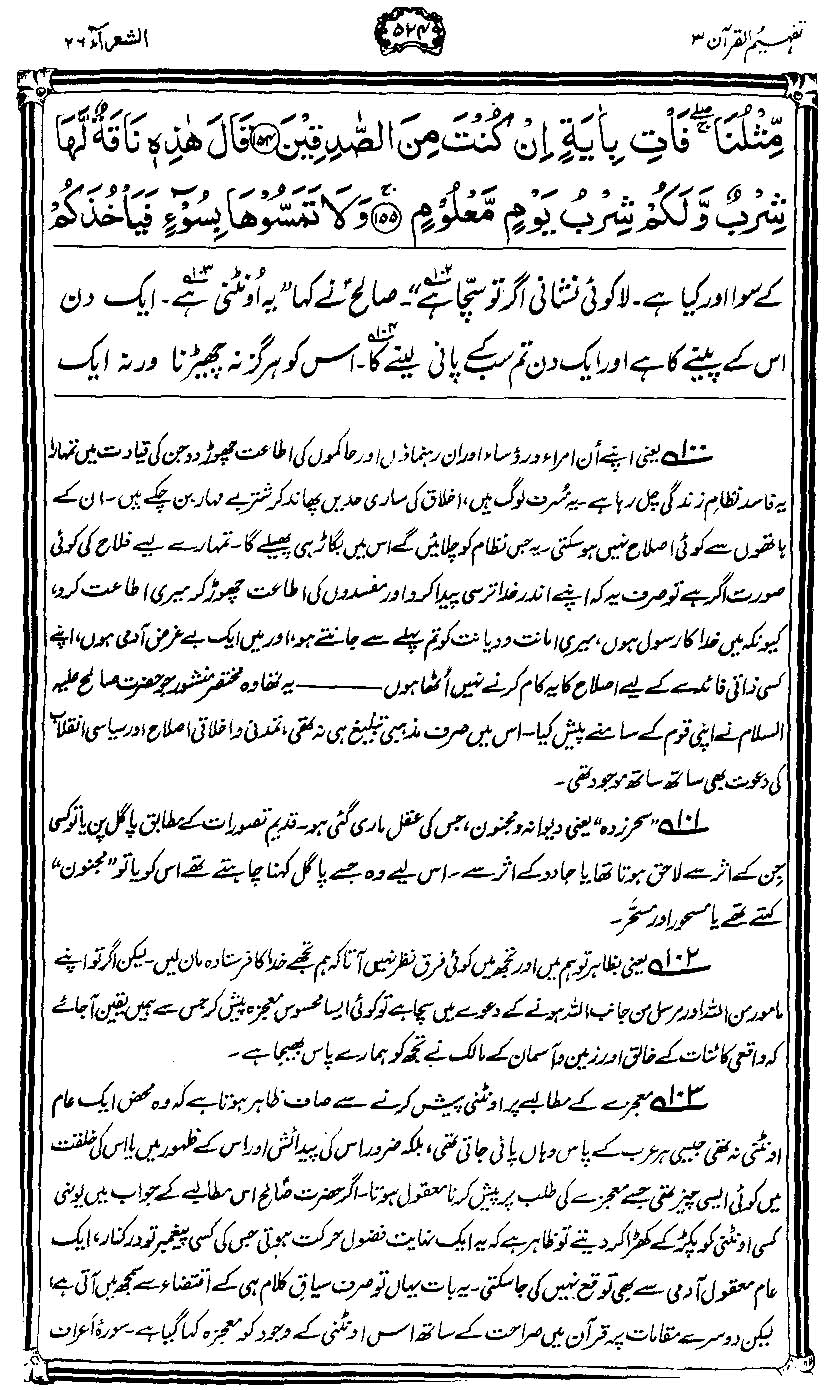 تفہیم القرآن ۳
۵۲۴
الشعرآء ۲۶
مِّثْلُنَا ۖۚ فَاْتِ بِاٰيَةٍ اِنْ كُنْتَ مِنَ الصّٰدِقِيْنَ ﴿۱۵۴﴾ قَالَ هٰذِهٖ نَاقَةٌ لَّهَا
شِرْبٌ وَّلَكُمْ شِرْبُ يَوْمٍ مَّعْلُوْمٍ ﴿۱۵۵﴾ۚ وَلَا تَمَسُّوْهَا بِسُوْٓءٍ فَيَاْخُذَكُمْ
کے سوا اور کیا ہے۔ لا کوئی نشانی اگر تو سچّا ہے"۱۰۲۔ صالحؑ نے کہا "یہ اُونٹنی ہے۱۰۳۔ ایک دن
اس کے پینے کا ہے اور ایک دن تم سب کے پانی لینے کا۱۰۴۔ اس کو ہرگز نہ چھیڑنا ورنہ ایک
۱۰۰ یعنی اپنے اُن امراء و رؤساء اور ان رہنماؤں اور حاکموں کی اطاعت چھوڑ دو جن کی قیادت میں تمہارا
یہ فاسد نظام زندگی چل رہا ہے۔ یہ مُسرف لوگ ہیں، اخلاق کی ساری حدیں پھاند کر شتر بے مہار بن چکے ہیں۔ ان کے
ہاتھوں سے کوئی اصلاح نہیں ہو سکتی۔ یہ جس نظام کو چلائیں گے اس میں بگاڑ ہی پھیلے گا۔ تمہارے لیے فلاح کی کوئی
صورت اگر ہے تو صرف یہ کہ اپنے اندر خدا ترسی پیدا کرو اور مفسدوں کی اطاعت چھوڑ کر میری اطاعت کرو،
کیونکہ میں خدا کا رسول ہوں، میری امانت و دیانت کو تم پہلے سے جانتے ہو، اور میں ایک بے غرض آدمی ہوں، اپنے
کسی ذاتی فائدے کے لیے اصلاح کا یہ کام کرنے نہیں اُٹھا ہوں ——— یہ تھا وہ مختصر منشور جو حضرت صالح علیہ
السلام نے اپنی قوم کے سامنے پیش کیا۔ اس میں صرف مذہبی تبلیغ ہی نہ تھی، تمدنی و اخلاقی اصلاح اور سیاسی انقلاب
کی دعوت بھی ساتھ ساتھ موجود تھی۔
۱۰۱ "سحر زدہ" یعنی دیوانہ و مجنون، جس کی عقل ماری گئی ہو۔ قدیم تصورات کے مطابق پاگل پن یا تو کسی
جِن کے اثر سے لاحق ہوتا تھا یا جادو کے اثر سے۔ اس لیے وہ جسے پاگل کہنا چاہتے تھے اس کو یا تو "مجنون"
کہتے تھے یا مسحور اور مسحَّر۔
۱۰۲ یعنی بظاہر تو ہم میں اور تجھ میں کوئی فرق نظر نہیں آتا کہ ہم تجھے خدا کا فرستادہ مان لیں۔ لیکن اگر تو اپنے
مامور من اللہ اور مرسل من جانب اللہ ہونے کے دعوے میں سچا ہے تو کوئی ایسا محسوس معجزہ پیش کر جس سے ہمیں یقین آ جائے
کہ واقعی کائنات کے خالق اور زمین و آسمان کے مالک نے تجھ کو ہمارے پاس بھیجا ہے۔
۱۰۳ معجزے کے مطالبے پر اونٹنی پیش کرنے سے صاف ظاہر ہوتا ہے کہ وہ محض ایک عام
اونٹنی نہ تھی جیسی ہر عرب کے پاس وہاں پائی جاتی تھی، بلکہ ضرور اس کی پیدائش اور اس کے ظہور میں یا اس کی خلقت
میں کوئی ایسی چیز تھی جسے معجزے کی طلب پر پیش کرنا معقول ہوتا۔ اگر حضرت صالح اس مطالبے کے جواب میں یونہی
کسی اونٹنی کو پکڑ کے کھڑا کر دیتے تو ظاہر ہے کہ یہ ایک نہایت فضول حرکت ہوتی جس کی کسی پیغمبر تو درکنار، ایک
عام معقول آدمی سے بھی توقع نہیں کی جا سکتی۔ یہ بات یہاں تو صرف سیاق کلام ہی کے اقتضاء سے سمجھ میں آتی ہے،
لیکن دوسرے مقامات پر قرآن میں صراحت کے ساتھ اس اونٹنی کے وجود کو معجزہ کہا گیا ہے۔ سورۂ اعراف